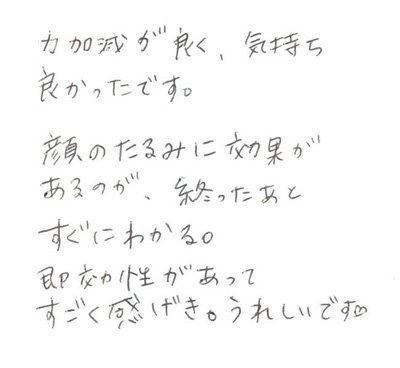 力加減が良く、気持ち
良かったです。
顔のたるみに効果が
あるのが、終ったあと
すぐにわかる。
即効性があって
すごく感げき。うれしいです♡